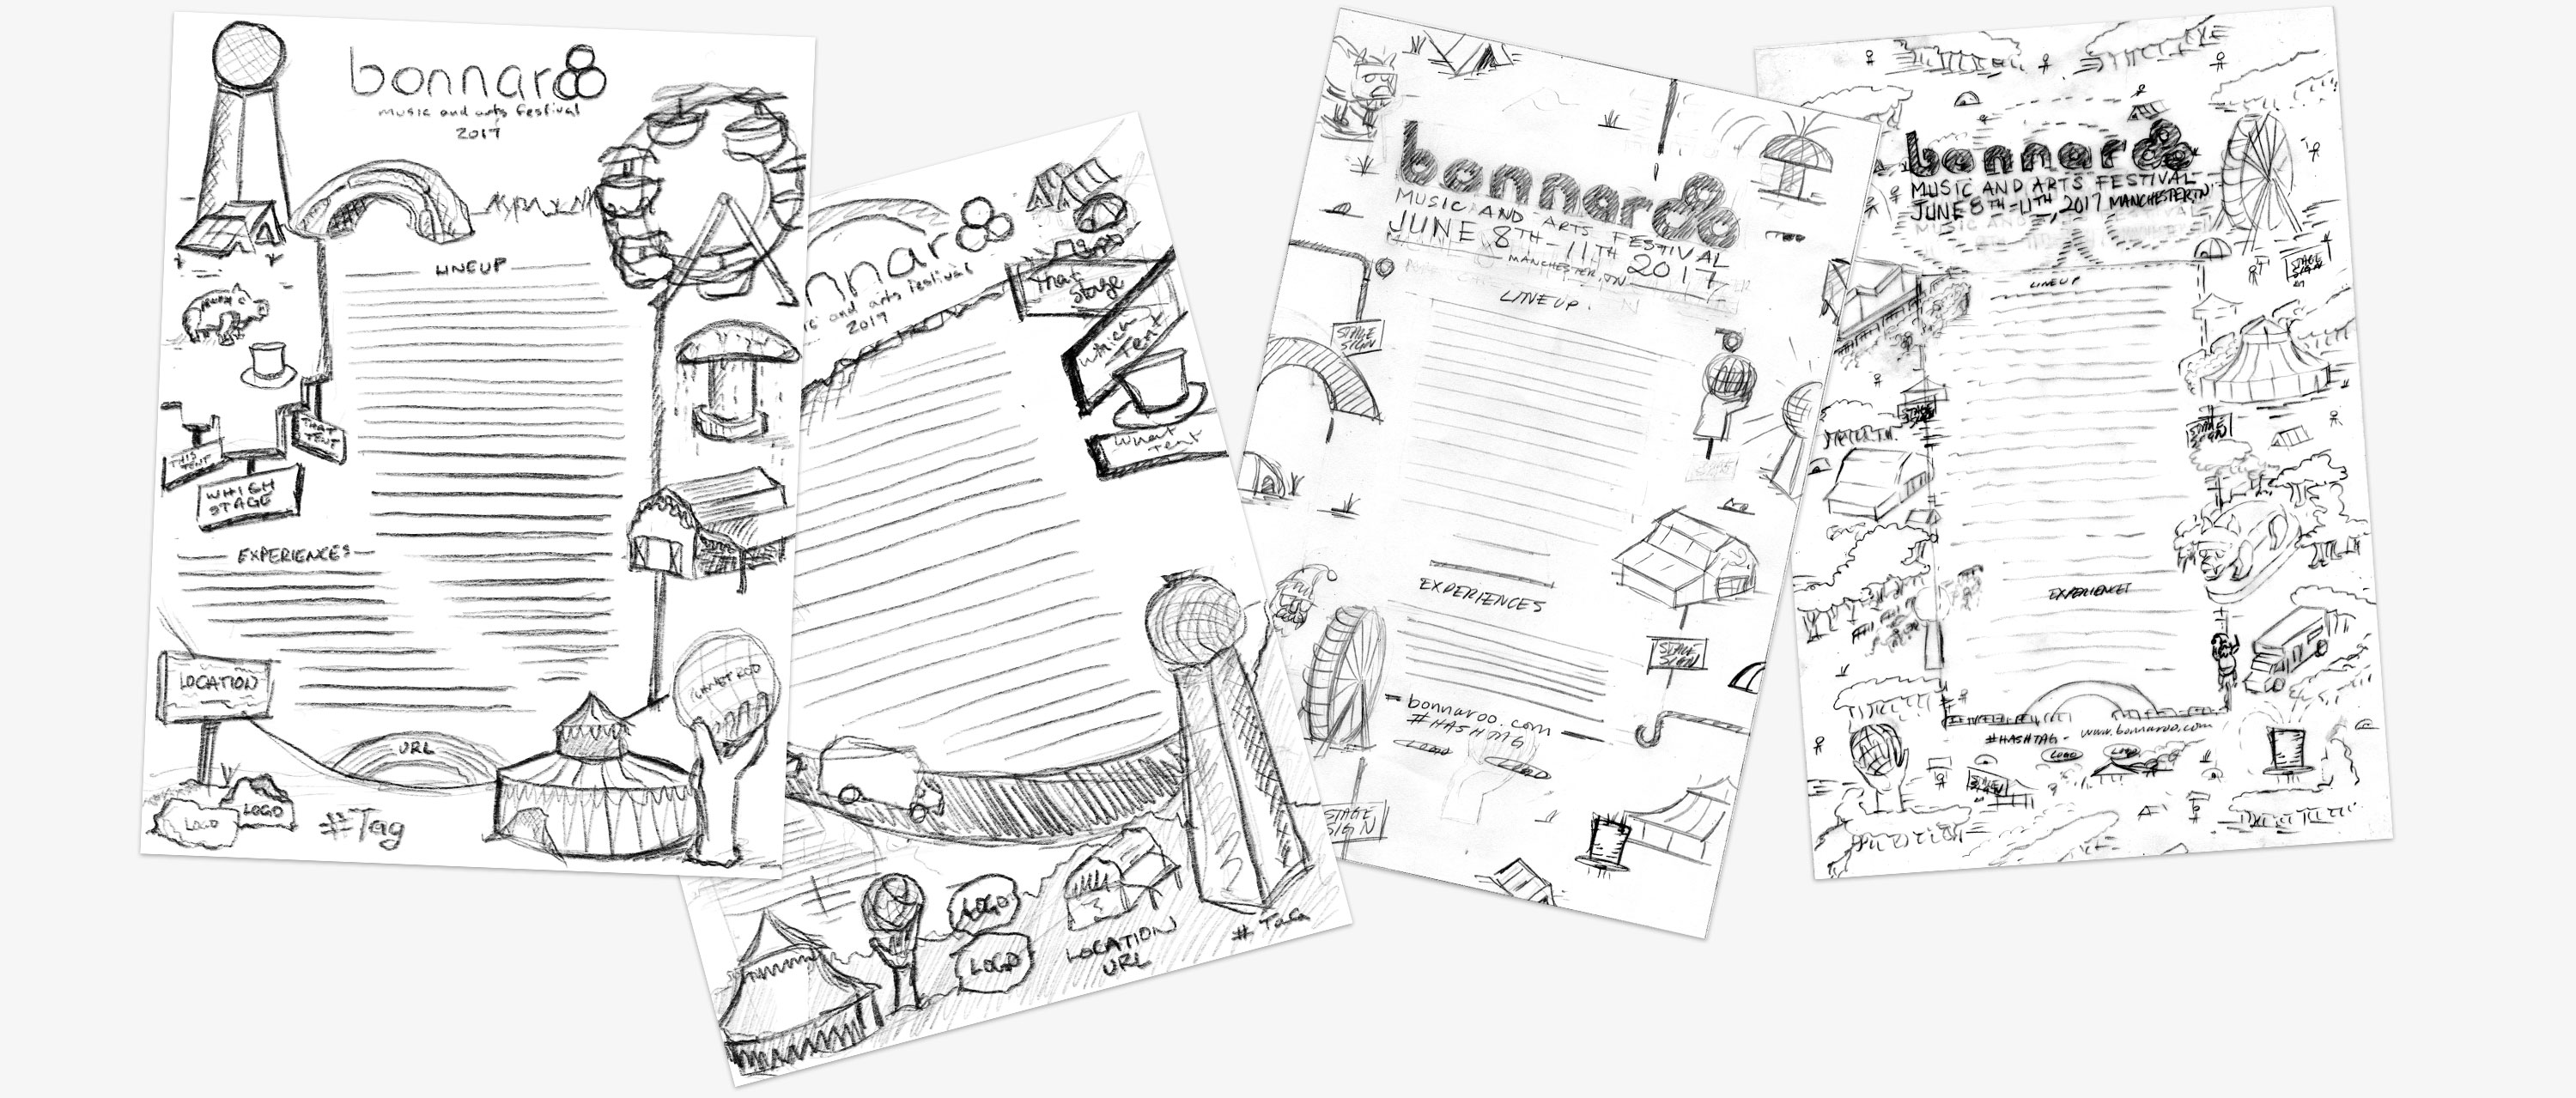 bonnaroo
music and arts festival
2017
LINEUP
THAT
TENT
THIS
TENT
WHISH
STAGE
EXPERIENCES
LOCATION
PLANET ROO
URL
LOGO
LOGO
#Tag
nnaroo
ic and arts festival
2017
That
Stage
Which
Tent
What
Tent
LOGO
LOGO
LOCATION
URL
# TaG
bonnaroo
MUSIC AND ARTS FESTIVAL
JUNE 8TH-11TH 2017
MANCHESTER, TN
LINEUP.
STAGE
SIGN
EXPERIENCES
STAGE
SIGN
bonnaroo.com
#HASHTAG
LOGO
LOGO
STAGE
SIGN
bonnaroo
MUSIC AND ARTS FESTIVAL
JUNE 8TH-11TH, 2017 MANCHESTER,TN
LINEUP
STAGE
SIGN
STAGE
SIGN
STAGE
SIGN
EXPERIENCES
#HASHTAG - www.bonnaroo.com
LOGO
LOGO
STAGE
SIGN